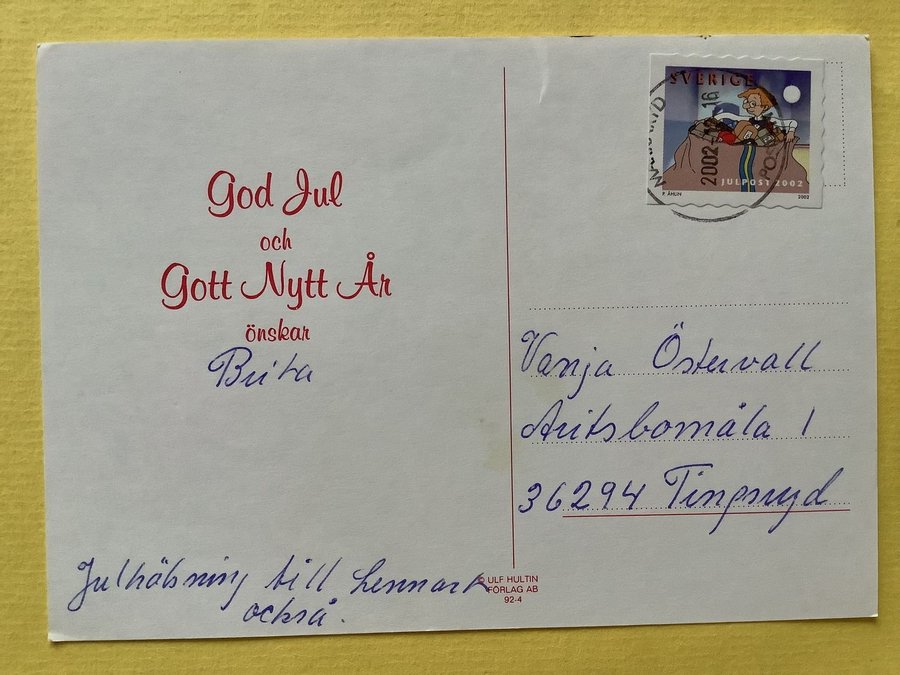 God Jul
och
Gott Nytt År
önskar
Brita
Julhälsning till Lennart
också.
SVERIGE
2002-12-16
JULPOST 2002
P. ÅHLIN
2002
Vanja Östervall
Aritsbomåla 1
36294 Tingsryd
© ULF HULTIN
FÖRLAG AB
92-4